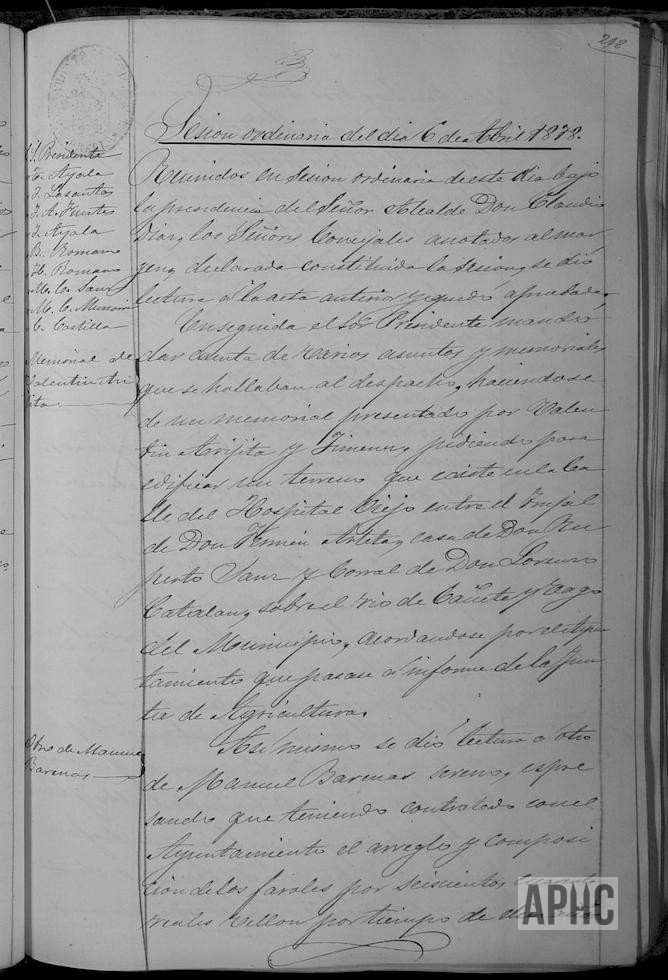 248
Sesion ordinaria del dia 6 de Abril 1878.
S. Presidente
F. Ayala
F. Losantos
J. A. Fuertes
J. Ayala
B. Romano
H. Romano
M. C. Sanz
M. C.
C. Castilla
Reunidos en sesion ordinaria de este dia bajo
la presidencia del Señor Alcalde Don Claudio
Diaz, los Señores Concejales anotados al mar
gen, declarada constituida la sesion, se dió
lectura á la acta anterior y quedó aprobada.
Enseguida el Sor Presidente mandó
dar cuenta de varios asuntos y memoriales
Memorial de
Valentin Ari
jita
que se hallaban al despacho, haciendose
de un memorial presentado por Valen
tin Arijita y Jimenez, pidiendo para
edificar un terreno que existe en la Ca
lle del Hospital Viejo entre el Trujal
de Don Fermin Arteta, casa de Don Ru
perto Sanz y Corral de Don Lorenzo
Catalan, sobre el rio de Cañete y Vago
del Municipio, acordandose por el Ayun
tamiento que pasase á informe de la Jun
ta de Agricultura.
Otro de Manuel
Barenas
Asi mismo se dió lectura á otro
de Manuel Barenas sereno, espre
sando que teniendo contratado con el
Ayuntamiento el arreglo y composi
cion de los faroles por seiscientos
reales vellon por tiempo de
APHC